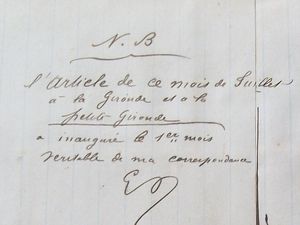 N.B
l'article de ce mois de Juillet
à la Gironde et à la
petite Gironde
a inauguré le 1er mois
veritable de ma correspondance